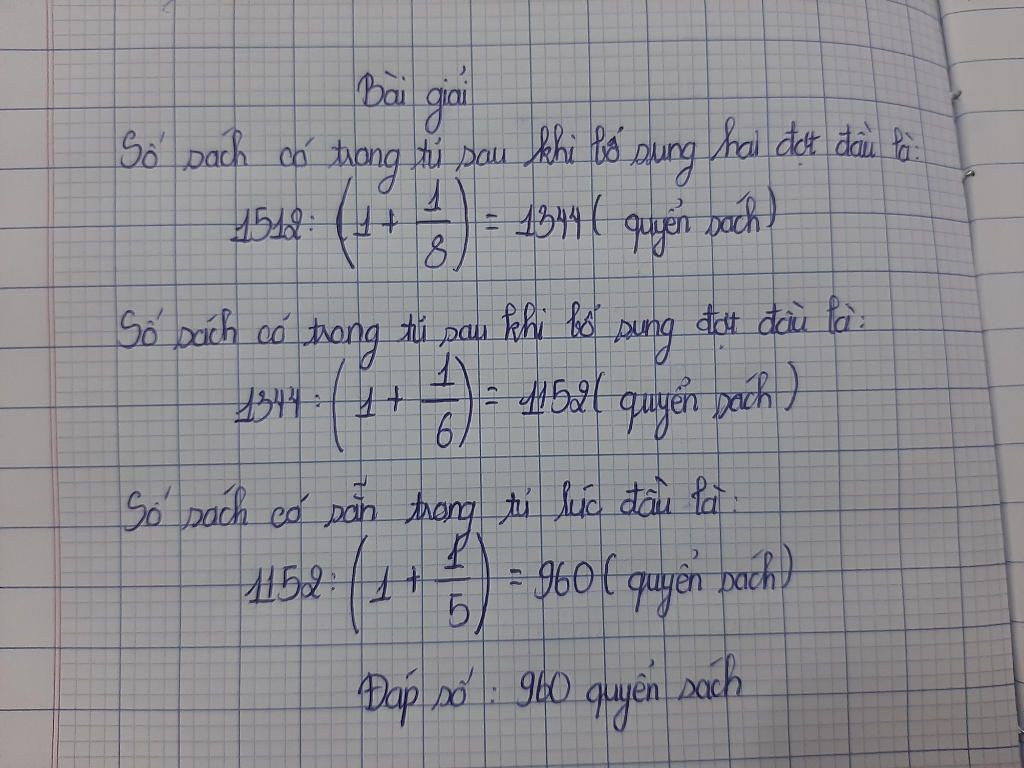 Bài giải
Số sách có trong tủ sau khi bổ sung hai đợt đầu là:
1512: (1 + 1/8) = 1344 ( quyển sách)
Số sách có trong tủ sau khi bổ sung đợt đầu là:
1344 : (1 + 1/6) = 1152 ( quyển sách)
Số sách có sẵn trong tủ lúc đầu là:
1152: (1 + 1/5) = 960 ( quyển sách)
Đáp số : 960 quyển sách